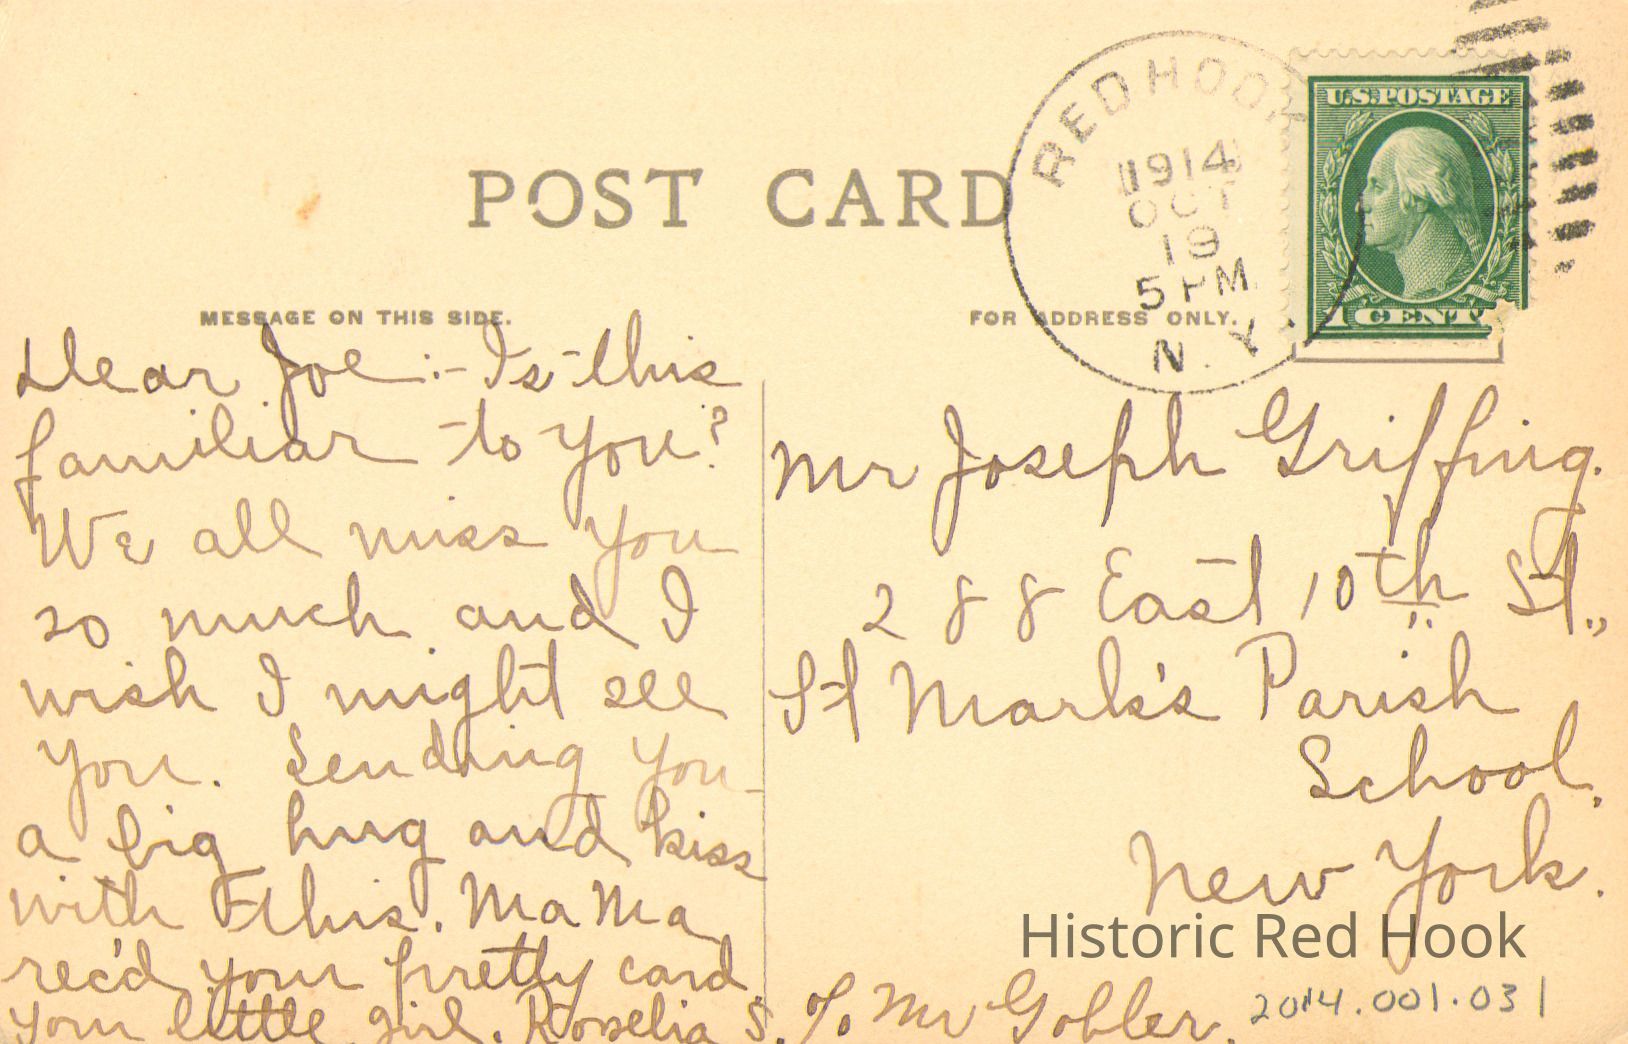 POST CARD
RED HOOK
1914
OCT
19
5 PM
N.Y.
U.S. POSTAGE
1 CENT
MESSAGE ON THIS SIDE.
FOR ADDRESS ONLY.
Dear Joe:- Is this
familiar to you?
We all miss you
so much and I
wish I might see
you. Sending you
a big hug and kiss
with this. MaMa
rec'd your pretty card.
Your little girl. Roselia S.
Mr Joseph Griffing.
288 East 10th St.,
St Mark's Parish
School.
New York.
c/o Mr Gobler.
Historic Red Hook
2014.001.031